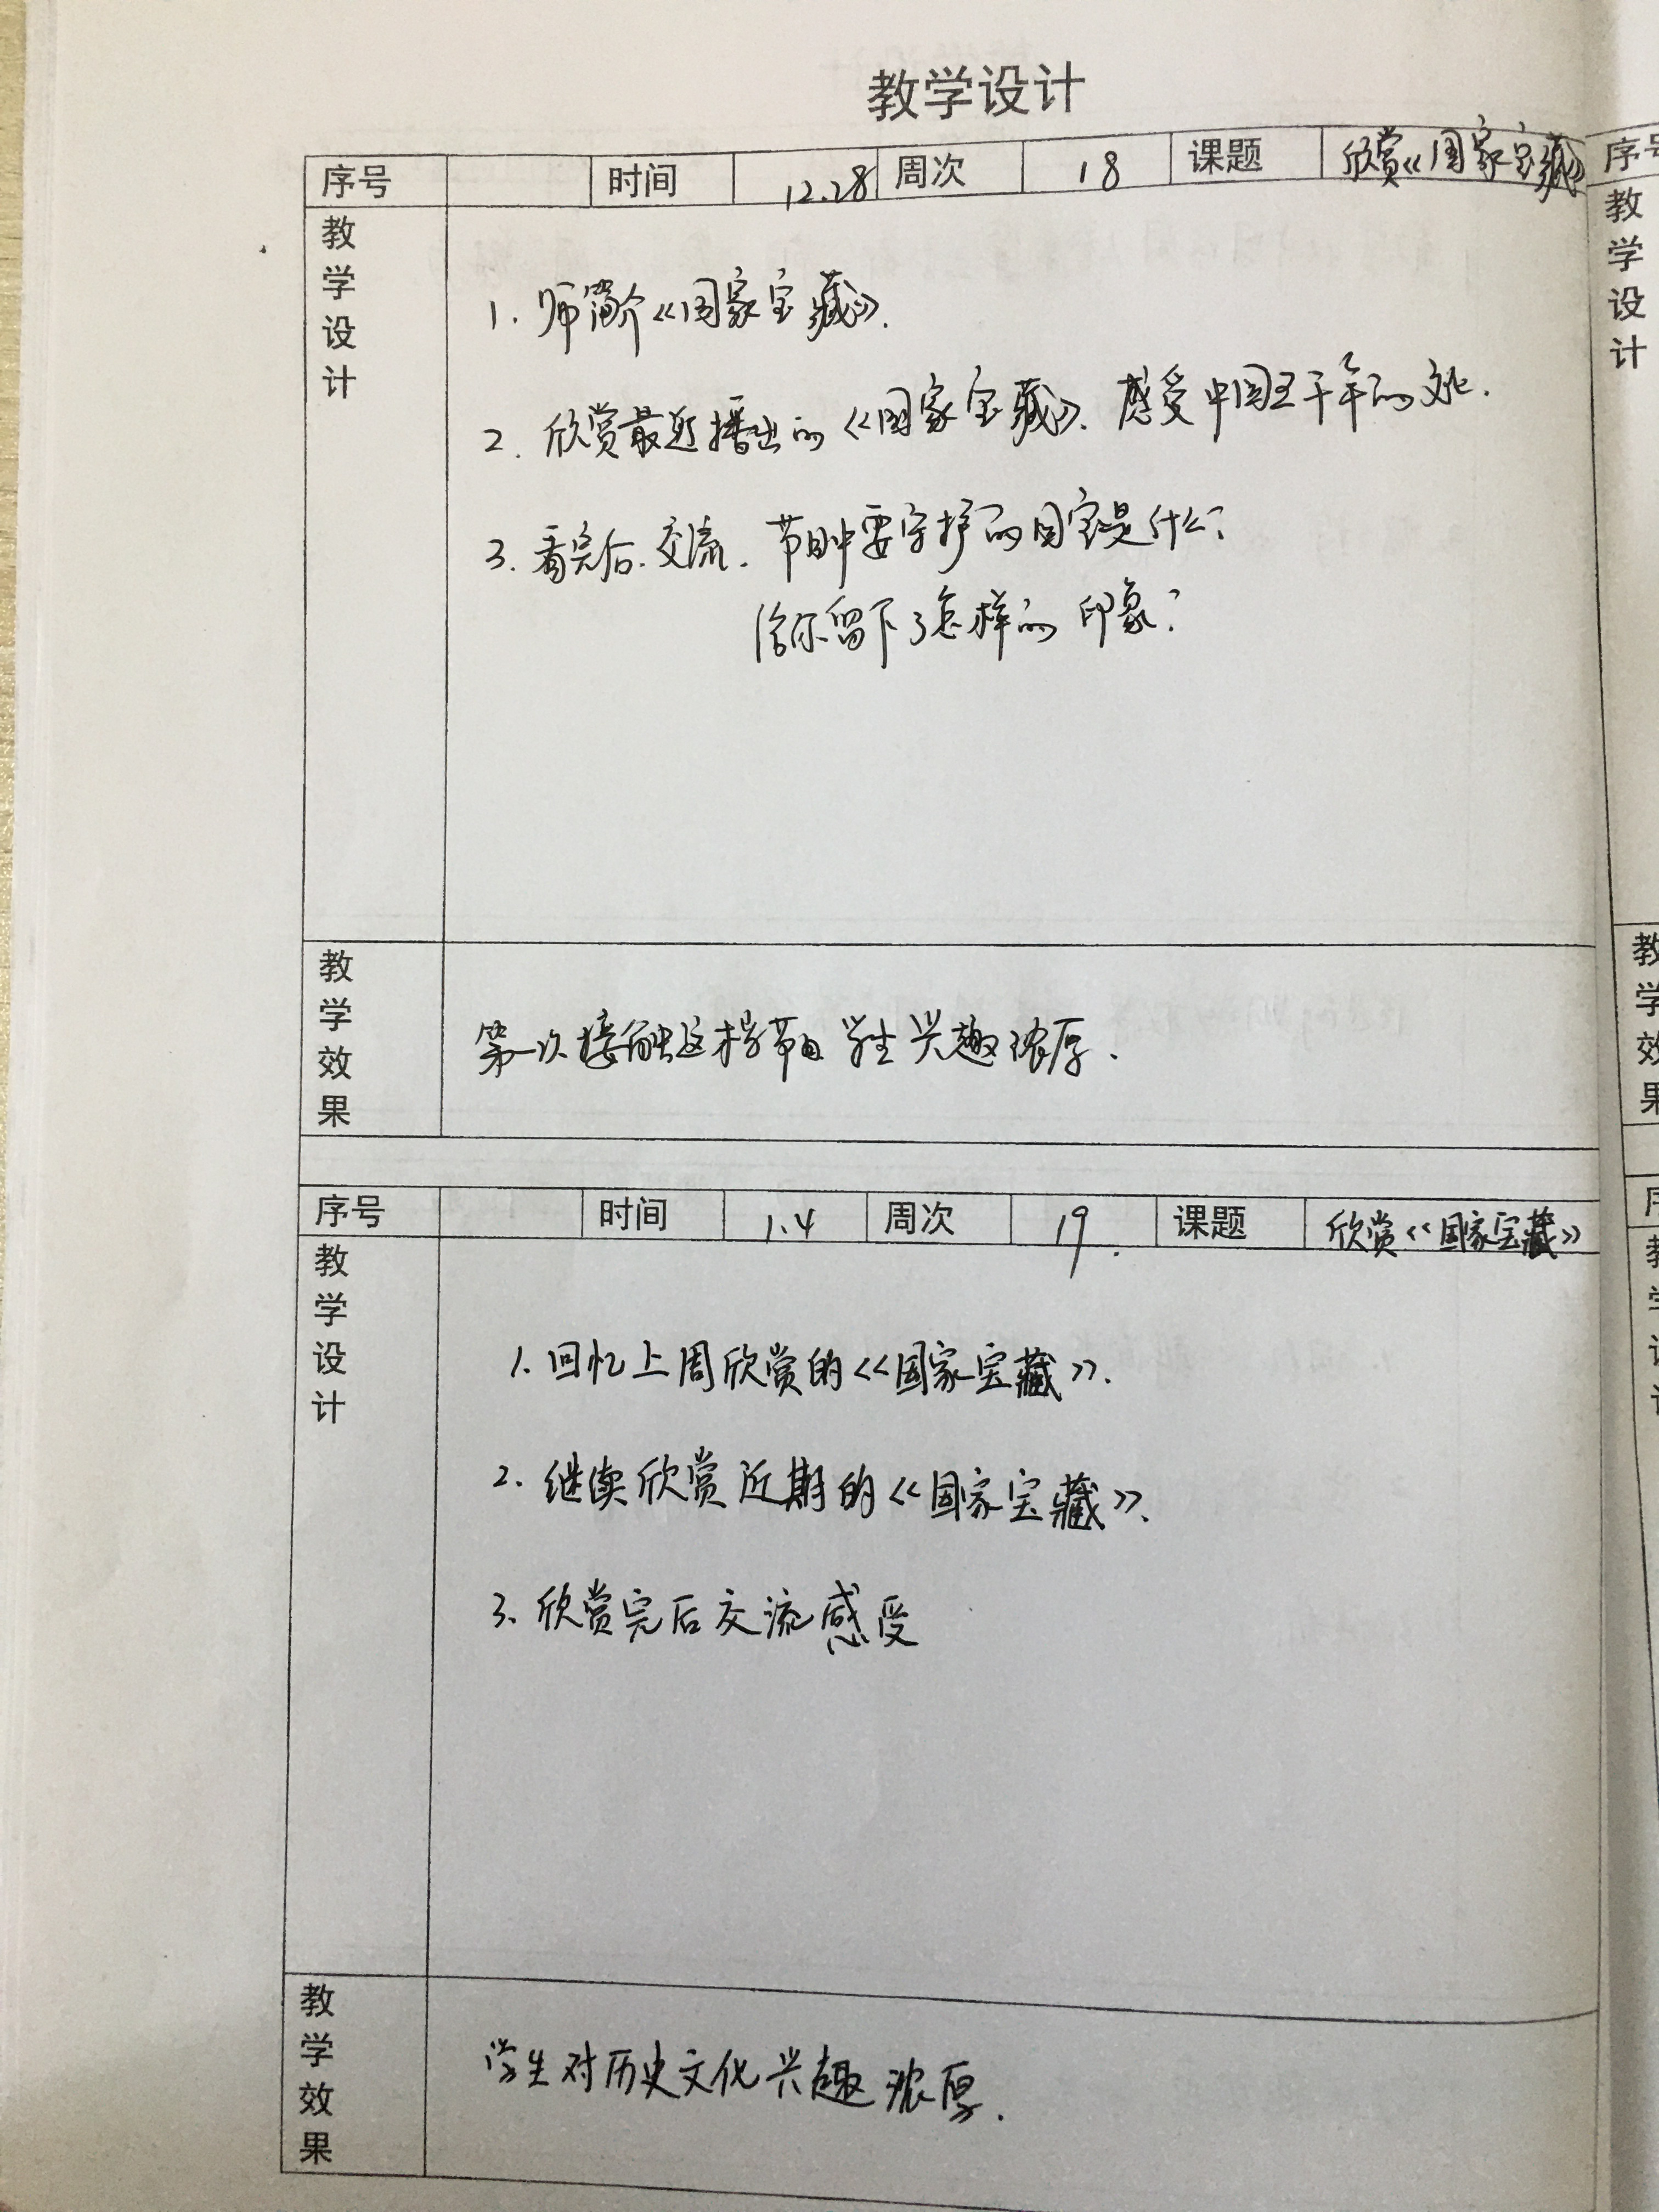 教学设计
序号 时间 12.28 周次 18 课题 欣赏《国家宝藏》
教
学
设
计
1. 师简介《国家宝藏》.
2. 欣赏最近播出的《国家宝藏》. 感受中国五千年的文化.
3. 看完后. 交流. 节目中要守护的国宝是什么?
给你留下了怎样的印象?
教
学
效
果
第一次接触这样节目 学生兴趣浓厚.
序号 时间 1.4 周次 19. 课题 欣赏《国家宝藏》
教
学
设
计
1. 回忆上周欣赏的《国家宝藏》.
2. 继续欣赏近期的《国家宝藏》.
3. 欣赏完后交流感受
教
学
效
果
学生对历史文化兴趣浓厚.
序号
教
学
设
计
教
学
效
果